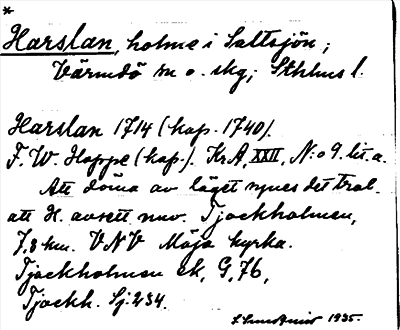 *
Harslan, holme i Saltsjön;
Värmdö sn o. skg; Sthlms l.
Harslan 1714 (kop. 1740).
F. W. Hoppe (kap.). Kr A, XXII, N:o 9. lit. a.
Att döma av läget synes det trol.
att H. avsett nuv. Tjockholmen,
7,8 km. VNV Möja kyrka.
Tjockholmen ek, G, 76,
Tjockh. Sj. 234.
1935.